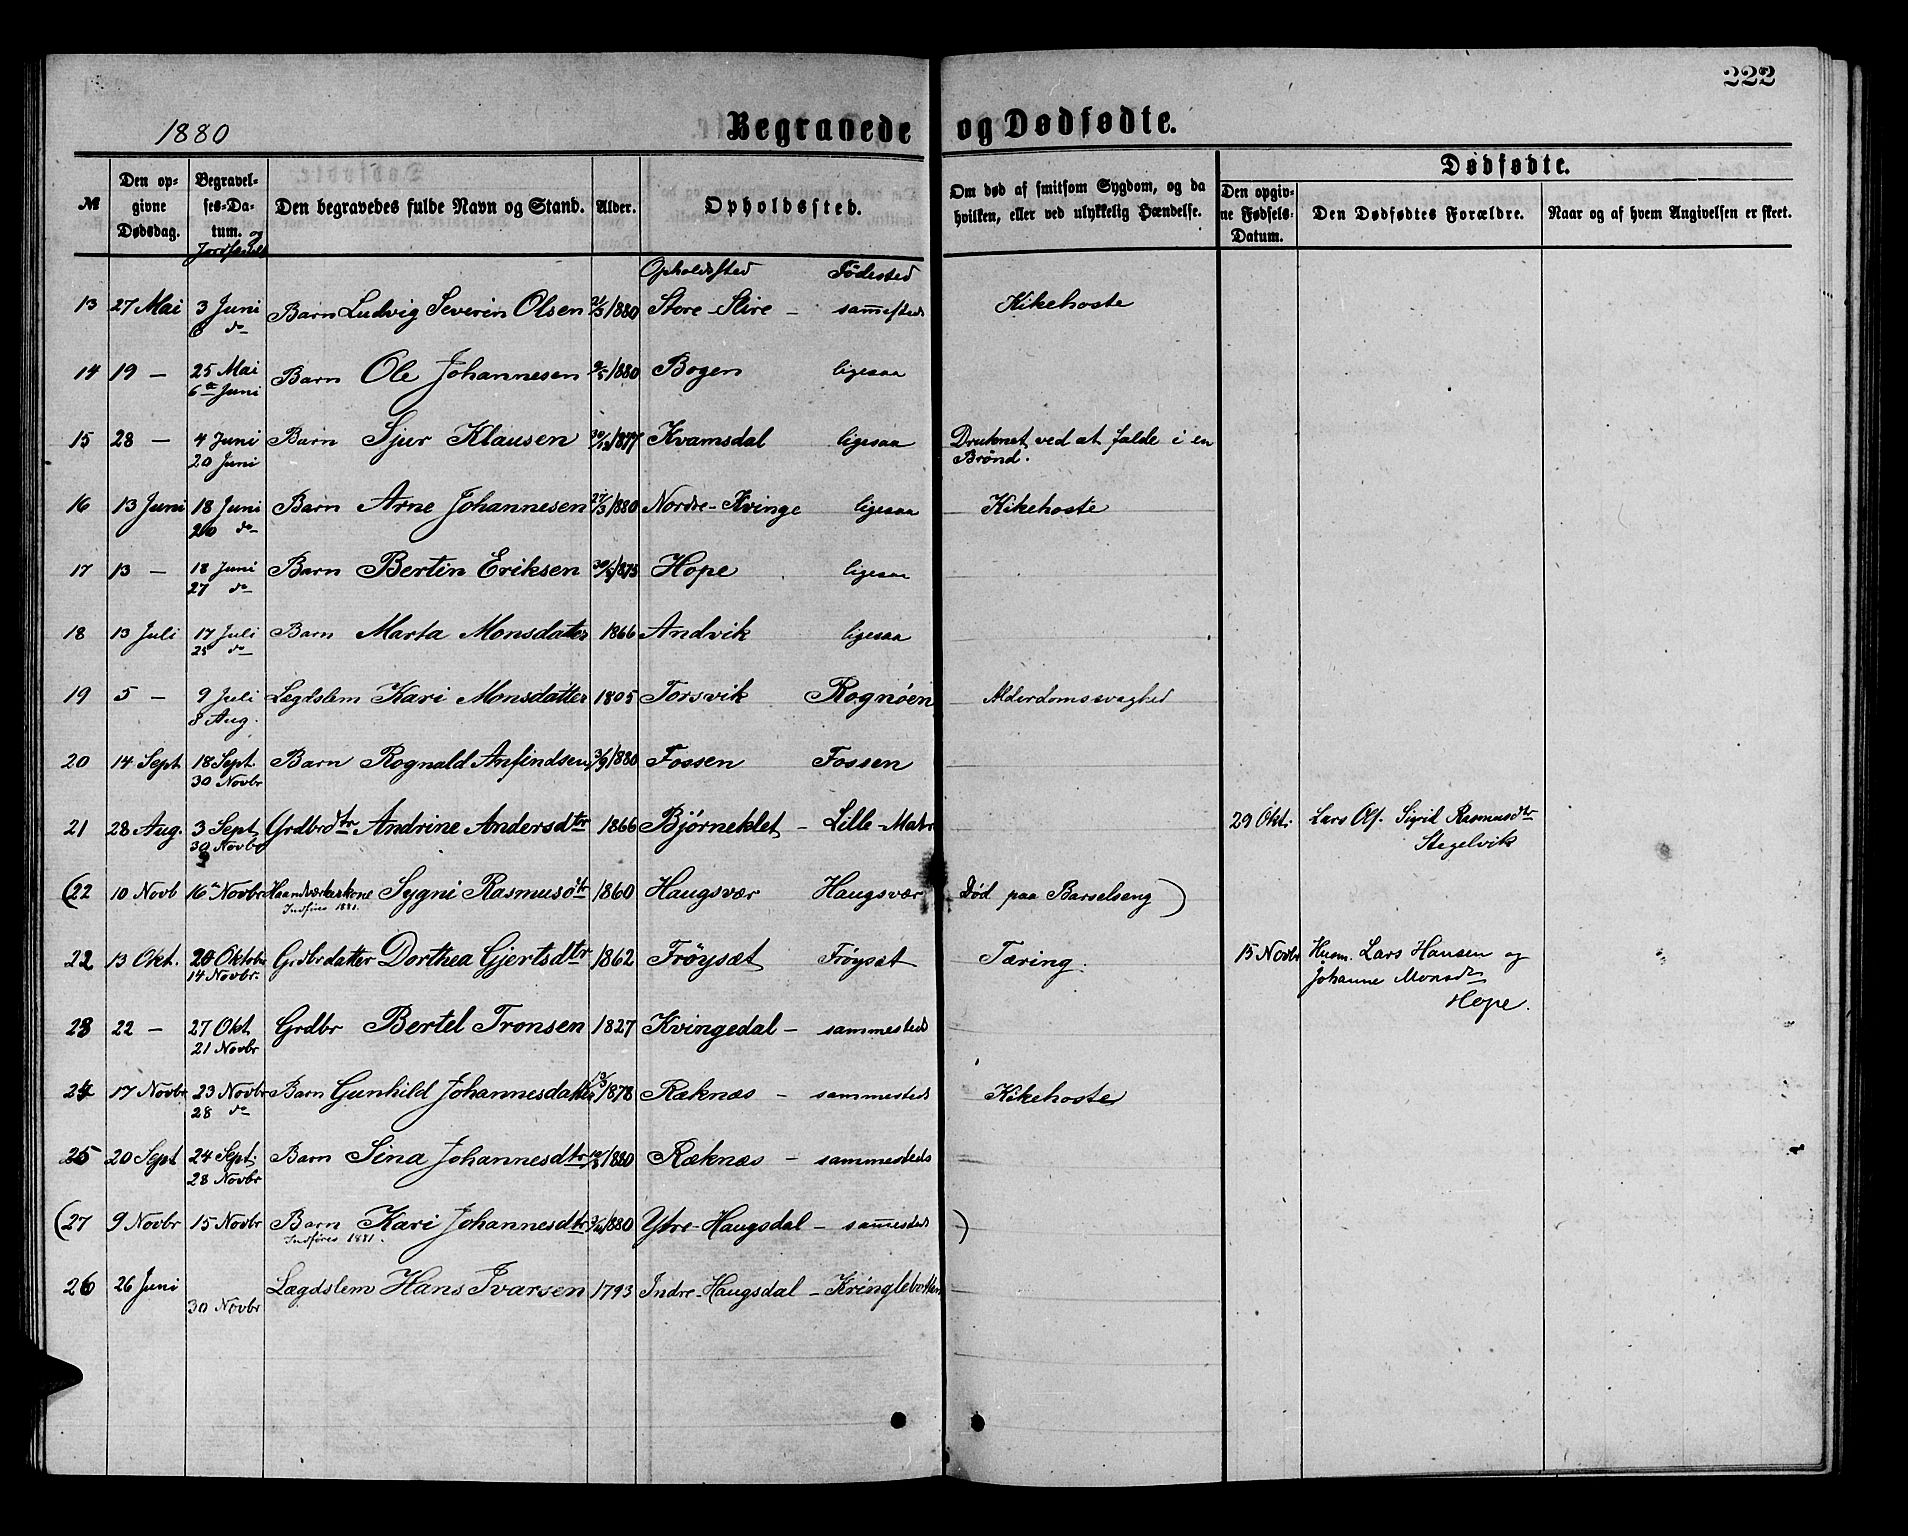 222
1880
Begravede og Dødfødte.
Dødfødte.
№
Den opgivne Dødsdag.
Begravelses-Datum. og Jordfæstelse
Den begravedes fulde Navn og Stand.
Alder.
Opholdssted.
Om død af smitsom Sygdom, og da hvilken, eller ved ulykkelig Hændelse.
Den opgivne Fødsels-Datum.
Den Dødfødtes Forældre.
Naar og af hvem Angivelsen er skeet.
Opholdssted Fødested
13 27 Mai 3 Juni Barn Ludvig Severin Olsen 21/3 1880 Store-Slire – sammesteds Kikehoste
6 do
14 19 – 25 Mai Barn Ole Johannesen 9/5 1880 Bogen ligesaa
6te Juni
15 28 – 4 Juni Barn Sjur Klausen 30/12 1877 Kvamsdal ligesaa Druknet ved at falde i en
20 Juni Brønd.
16 13 Juni 18 Juni Barn Arne Johannesen 27/3 1880 Nordre-Kvinge ligesaa Kikehoste
20 do
17 13 – 18 Juni Barn Bertin Eriksen 1875 Hope ligesaa
27 do
18 13 Juli 17 Juli Barn Marta Monsdatter 1866 Andvik ligesaa
25 do
19 5 – 9 Juli Lægdslem Kari Monsdatter 1805 Torsvik Rognøen Alderdomssvaghed
8 Aug.
20 14 Sept 18 Sept. Barn Rognald Anfindsen 3/9 1880 Fossen Fossen
30 Novbr
21 28 Aug. 3 Sept Grdbrdtr Andrine Andersdtr 1866 Bjørneklet – Lille-Matr 29 Okt. Lars Olf. Sigrid Rasmusdtr
30 Novbr Stegelvik
(22 10 Novb 16de Novbr Haandværkerkone Sygni Rasmusdtr 1860 Haugsvær Haugsvær Død paa Barselseng)
Indføres 1881.
22 13 Okt. 20 Oktobr Grdbrdatter Dorthea Gjertsdtr 1862 Frøysæt Frøysæt Tæring. 15 Novbr Husm. Lars Hansen og
14 Novbr. Johanne Monsdtr
Hope.
23 22 – 27 Okt Grdbr Bertel Tronsen 1827 Kvingedal – sammesteds
21 Novbr
24 17 Novbr 23 Novbr Barn Gunhild Johannesdatter 1878 Ræknæs – sammesteds Kikehoste
28 do
25 20 Sept 24 Sept. Barn Sina Johannesdtr 1880 Ræknæs – sammesteds
28 Novbr
(27 9 Novbr 15 Novbr Barn Kari Johannesdtr 1880 Ytre-Haugsdal – sammesteds )
Indføres 1881.
26 26 Juni Lægdslem Hans Ivarsen 1793 Indre-Haugsdal – Kringlebotten
30 Novbr